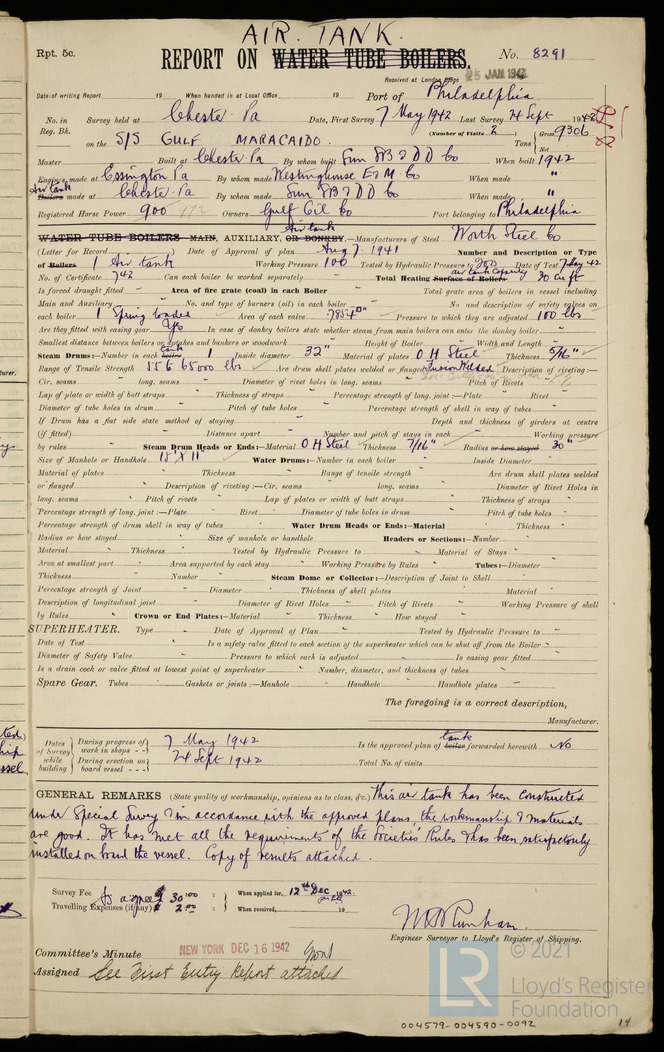 AIR. TANK.
Rpt. 5c.
REPORT ON WATER TUBE BOILERS. No. 8291
Received at London Office 25 JAN 1943
Date of writing Report 19 When handed in at Local Office 19 Port of Philadelphia
No. in Survey held at Chester Pa Date, First Survey 7 May 1942 Last Survey 24 Sept 1942
Reg. Bk. (Number of Visits 2)
on the S/S GULF MARACAIBO. Tons { Gross 9306 Net
Master Built at Chester Pa By whom built Sun SB & DD Co When built 1942
Engines made at Essington Pa By whom made Westinghouse E & M Co When made "
Air tank
Boilers made at Chester Pa By whom made Sun SB & DD Co When made "
Registered Horse Power 900 972 Owners Gulf Oil Co Port belonging to Philadelphia
Air tank
WATER TUBE BOILERS MAIN, AUXILIARY, OR DONKEY.—Manufacturers of Steel Worth Steel Co
(Letter for Record Date of Approval of plan Aug 7 1941 Number and Description or Type
of Boilers 1 Air tank Working Pressure 100 Tested by Hydraulic Pressure to 200 Date of Test 7 May 42
No. of Certificate 742 Can each boiler be worked separately Total Heating Surface of Boilers air tank capacity 20 cu ft
Is forced draught fitted Area of fire grate (coal) in each Boiler Total grate area of boilers in vessel including
Main and Auxiliary No. and type of burners (oil) in each boiler No and description of safety valves on
each boiler 1 Spring loaded Area of each valve .7854" Pressure to which they are adjusted 100 lbs
Are they fitted with easing gear Yes In case of donkey boilers state whether steam from main boilers can enter the donkey boiler
Smallest distance between boilers or uptakes and bunkers or woodwork Height of Boiler Width and Length
Steam Drums:—Number in each boiler tank 1 Inside diameter 32" Material of plates O H Steel Thickness 5/16"
Range of Tensile Strength 55 to 65000 lbs Are drum shell plates welded or flanged Fusion Welded Description of riveting:—
Cir. seams long. seams Diameter of rivet holes in long. seams Pitch of Rivets
Lap of plate or width of butt straps Thickness of straps Percentage strength of long. joint:—Plate Rivet
Diameter of tube holes in drum Pitch of tube holes Percentage strength of shell in way of tubes
If Drum has a flat side state method of staying Depth and thickness of girders at centre
(if fitted) Distance apart Number and pitch of stays in each Working pressure
by rules Steam Drum Heads or Ends:—Material O H Steel Thickness 7/16" Radius or how stayed 30"
Size of Manhole or Handhole 15" X 11" Water Drums:—Number in each boiler Inside Diameter
Material of plates Thickness Range of tensile strength Are drum shell plates welded
or flanged Description of riveting:—Cir. seams long. seams Diameter of Rivet Holes in
long. seams Pitch of rivets Lap of plates or width of butt straps Thickness of straps
Percentage strength of long. joint:—Plate Rivet Diameter of tube holes in drum Pitch of tube holes
Percentage strength of drum shell in way of tubes Water Drum Heads or Ends:—Material Thickness
Radius or how stayed Size of manhole or handhole Headers or Sections:—Number
Material Thickness Tested by Hydraulic Pressure to Material of Stays
Area at smallest part Area supported by each stay Working Pressure by Rules Tubes:—Diameter
Thickness Number Steam Dome or Collector:—Description of Joint to Shell
Percentage strength of Joint Diameter Thickness of shell plates Material
Description of longitudinal joint Diameter of Rivet Holes Pitch of Rivets Working Pressure of shell
by Rules Crown or End Plates:—Material Thickness How stayed
SUPERHEATER. Type Date of Approval of Plan Tested by Hydraulic Pressure to
Date of Test Is a safety valve fitted to each section of the superheater which can be shut off from the Boiler
Diameter of Safety Valve Pressure to which each is adjusted Is easing gear fitted
Is a drain cock or valve fitted at lowest point of superheater Number, diameter, and thickness of tubes
Spare Gear. Tubes Gaskets or joints:—Manhole Handhole Handhole plates
The foregoing is a correct description,
Manufacturer.
Dates of Survey while building { During progress of work in shops 7 May 1942
During erection on board vessel 24 Sept 1942
Is the approved plan of boiler tank forwarded herewith No
Total No. of visits
GENERAL REMARKS (State quality of workmanship, opinions as to class, &c.) This air tank has been constructed
under Special Survey & in accordance with the approved plans, the workmanship & materials
are good. It has met all the requirements of the Societies' Rules & has been satisfactorily
installed on board the vessel. Copy of results attached.
Survey Fee As agreed $ 30.00 When applied for, 12th Dec 1942
Travelling Expenses (if any) $ 2.00 When received, 19
Engineer Surveyor to Lloyd's Register of Shipping.
Committee's Minute NEW YORK DEC 16 1942
Assigned See First Entry Report attached
© 2021
LR Lloyd's Register Foundation
004579-004590-0092
14